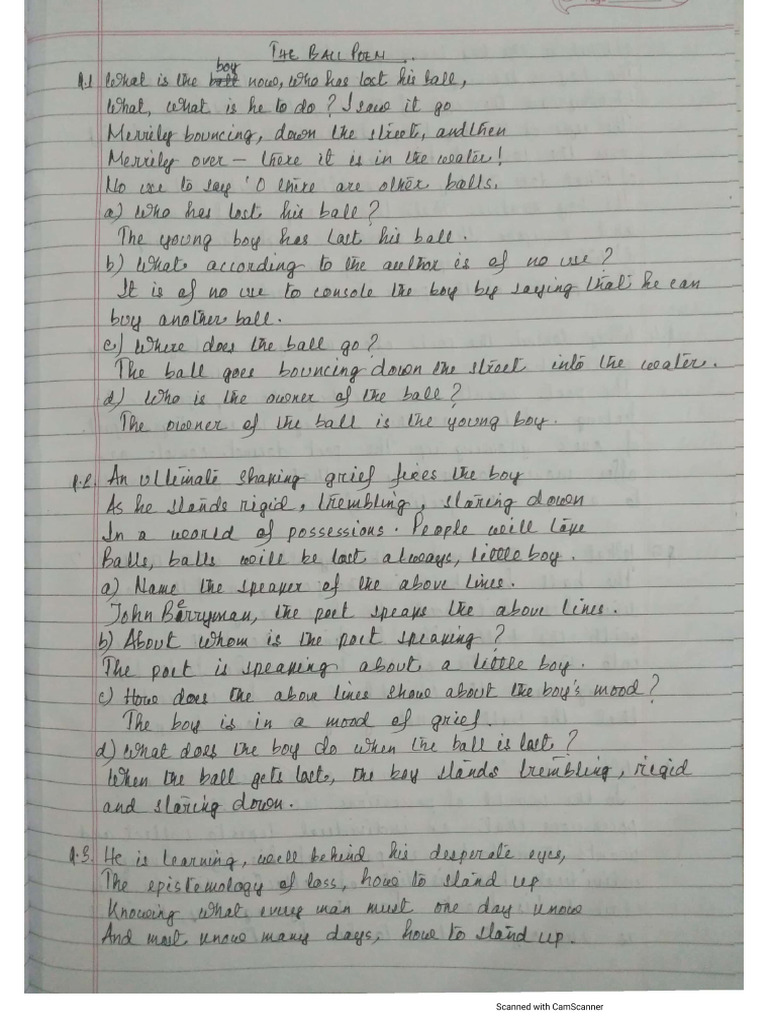 THE BALL POEM
boy
Q.1 What is the ball now, who has lost his ball,
What, what is he to do? I saw it go
Merrily bouncing, down the street, and then
Merrily over – there it is in the water!
No use to say 'O there are other balls.
a) Who has lost his ball?
The young boy has lost his ball.
b) What according to the author is of no use?
It is of no use to console the boy by saying that he can
buy another ball.
c) Where does the ball go?
The ball goes bouncing down the street into the water.
d) Who is the owner of the ball?
The owner of the ball is the young boy.
Q.2 An ultimate shaking grief fixes the boy
As he stands rigid, trembling, staring down
In a world of possessions. People will take
Balls, balls will be lost always, little boy.
a) Name the speaker of the above lines.
John Berryman, the poet speaks the above lines.
b) About whom is the poet speaking?
The poet is speaking about a little boy.
c) How does the above lines show about the boy's mood?
The boy is in a mood of grief.
d) What does the boy do when the ball is lost?
When the ball gets lost, the boy stands trembling, rigid
and staring down.
Q.3. He is learning, well behind his desperate eyes,
The epistemology of loss, how to stand up
Knowing what every man must one day know
And most know many days, how to stand up.
Scanned with CamScanner